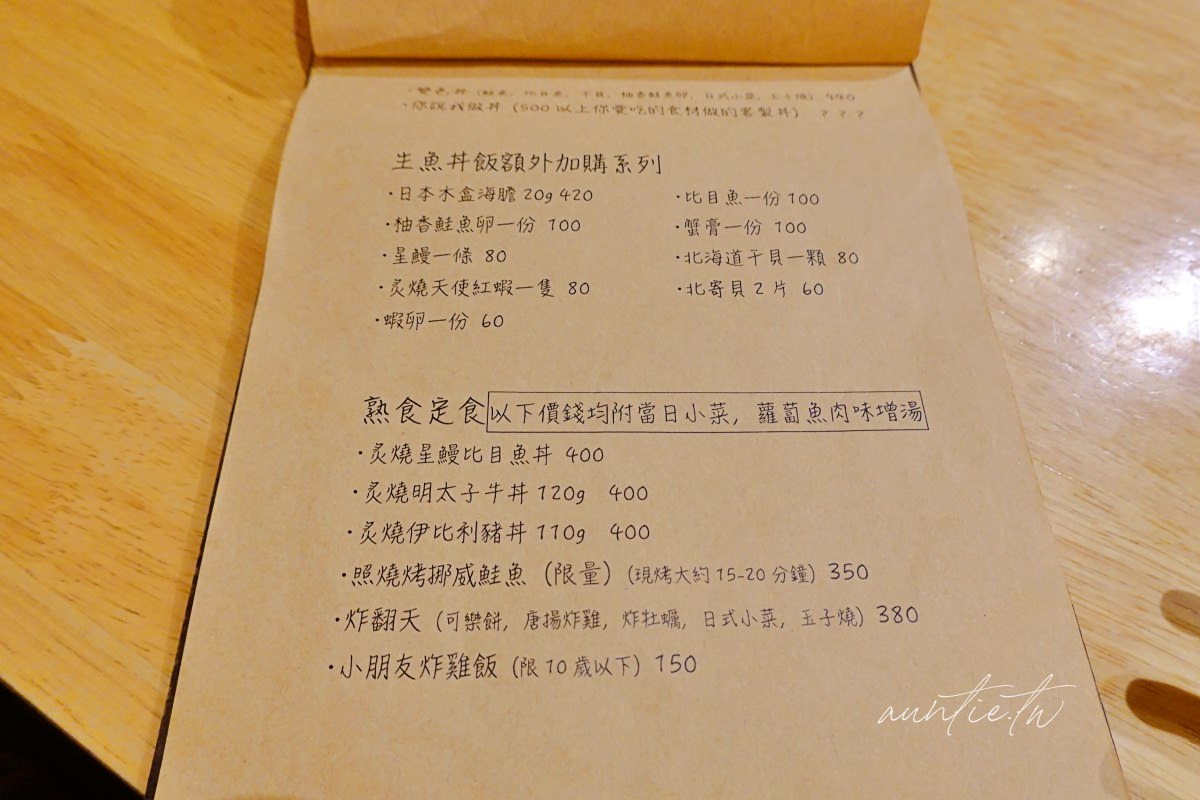 ・雙色丼（鮭魚, 比目魚, 干貝, 柚香鮭魚卵, 日式小菜, 玉子燒）440
・你說我做丼（500以上你愛吃的食材做的客製丼） ？？？
生魚丼飯額外加購系列
・日本木盒海膽 20g 420
・柚香鮭魚卵一份 100
・星鰻一條 80
・炙燒天使紅蝦一隻 80
・蝦卵一份 60
・比目魚一份 100
・蟹膏一份 100
・北海道干貝一顆 80
・北寄貝 2 片 60
熟食定食 以下價錢均附當日小菜, 蘿蔔魚肉味增湯
・炙燒星鰻比目魚丼 400
・炙燒明太子牛丼 120g 400
・炙燒伊比利豬丼 110g 400
・照燒烤挪威鮭魚（限量）（現烤大約 15-20 分鐘）350
・炸翻天（可樂餅, 唐揚炸雞, 炸牡蠣, 日式小菜, 玉子燒）380
・小朋友炸雞飯（限 10 歲以下）150
auntie.tw